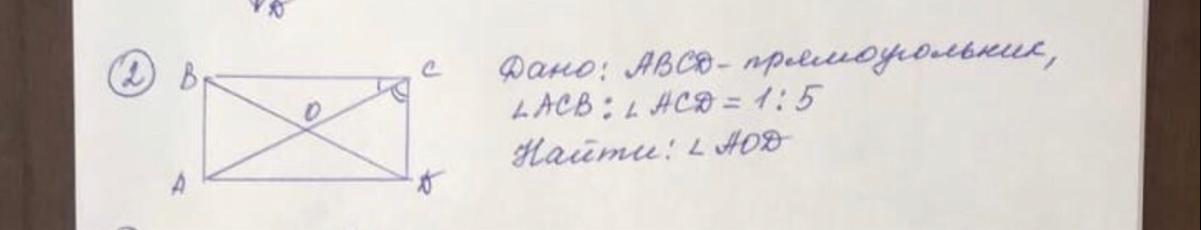 D
2 B C Дано: ABCD - прямоугольник,
O ∠ACB : ∠ACD = 1 : 5
A D Найти: ∠AOD